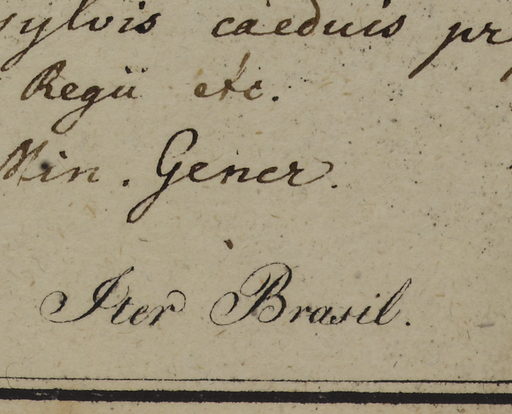 sylvis caeduis pr
Regii etc.
Min. Gener.
Iter Brasil.